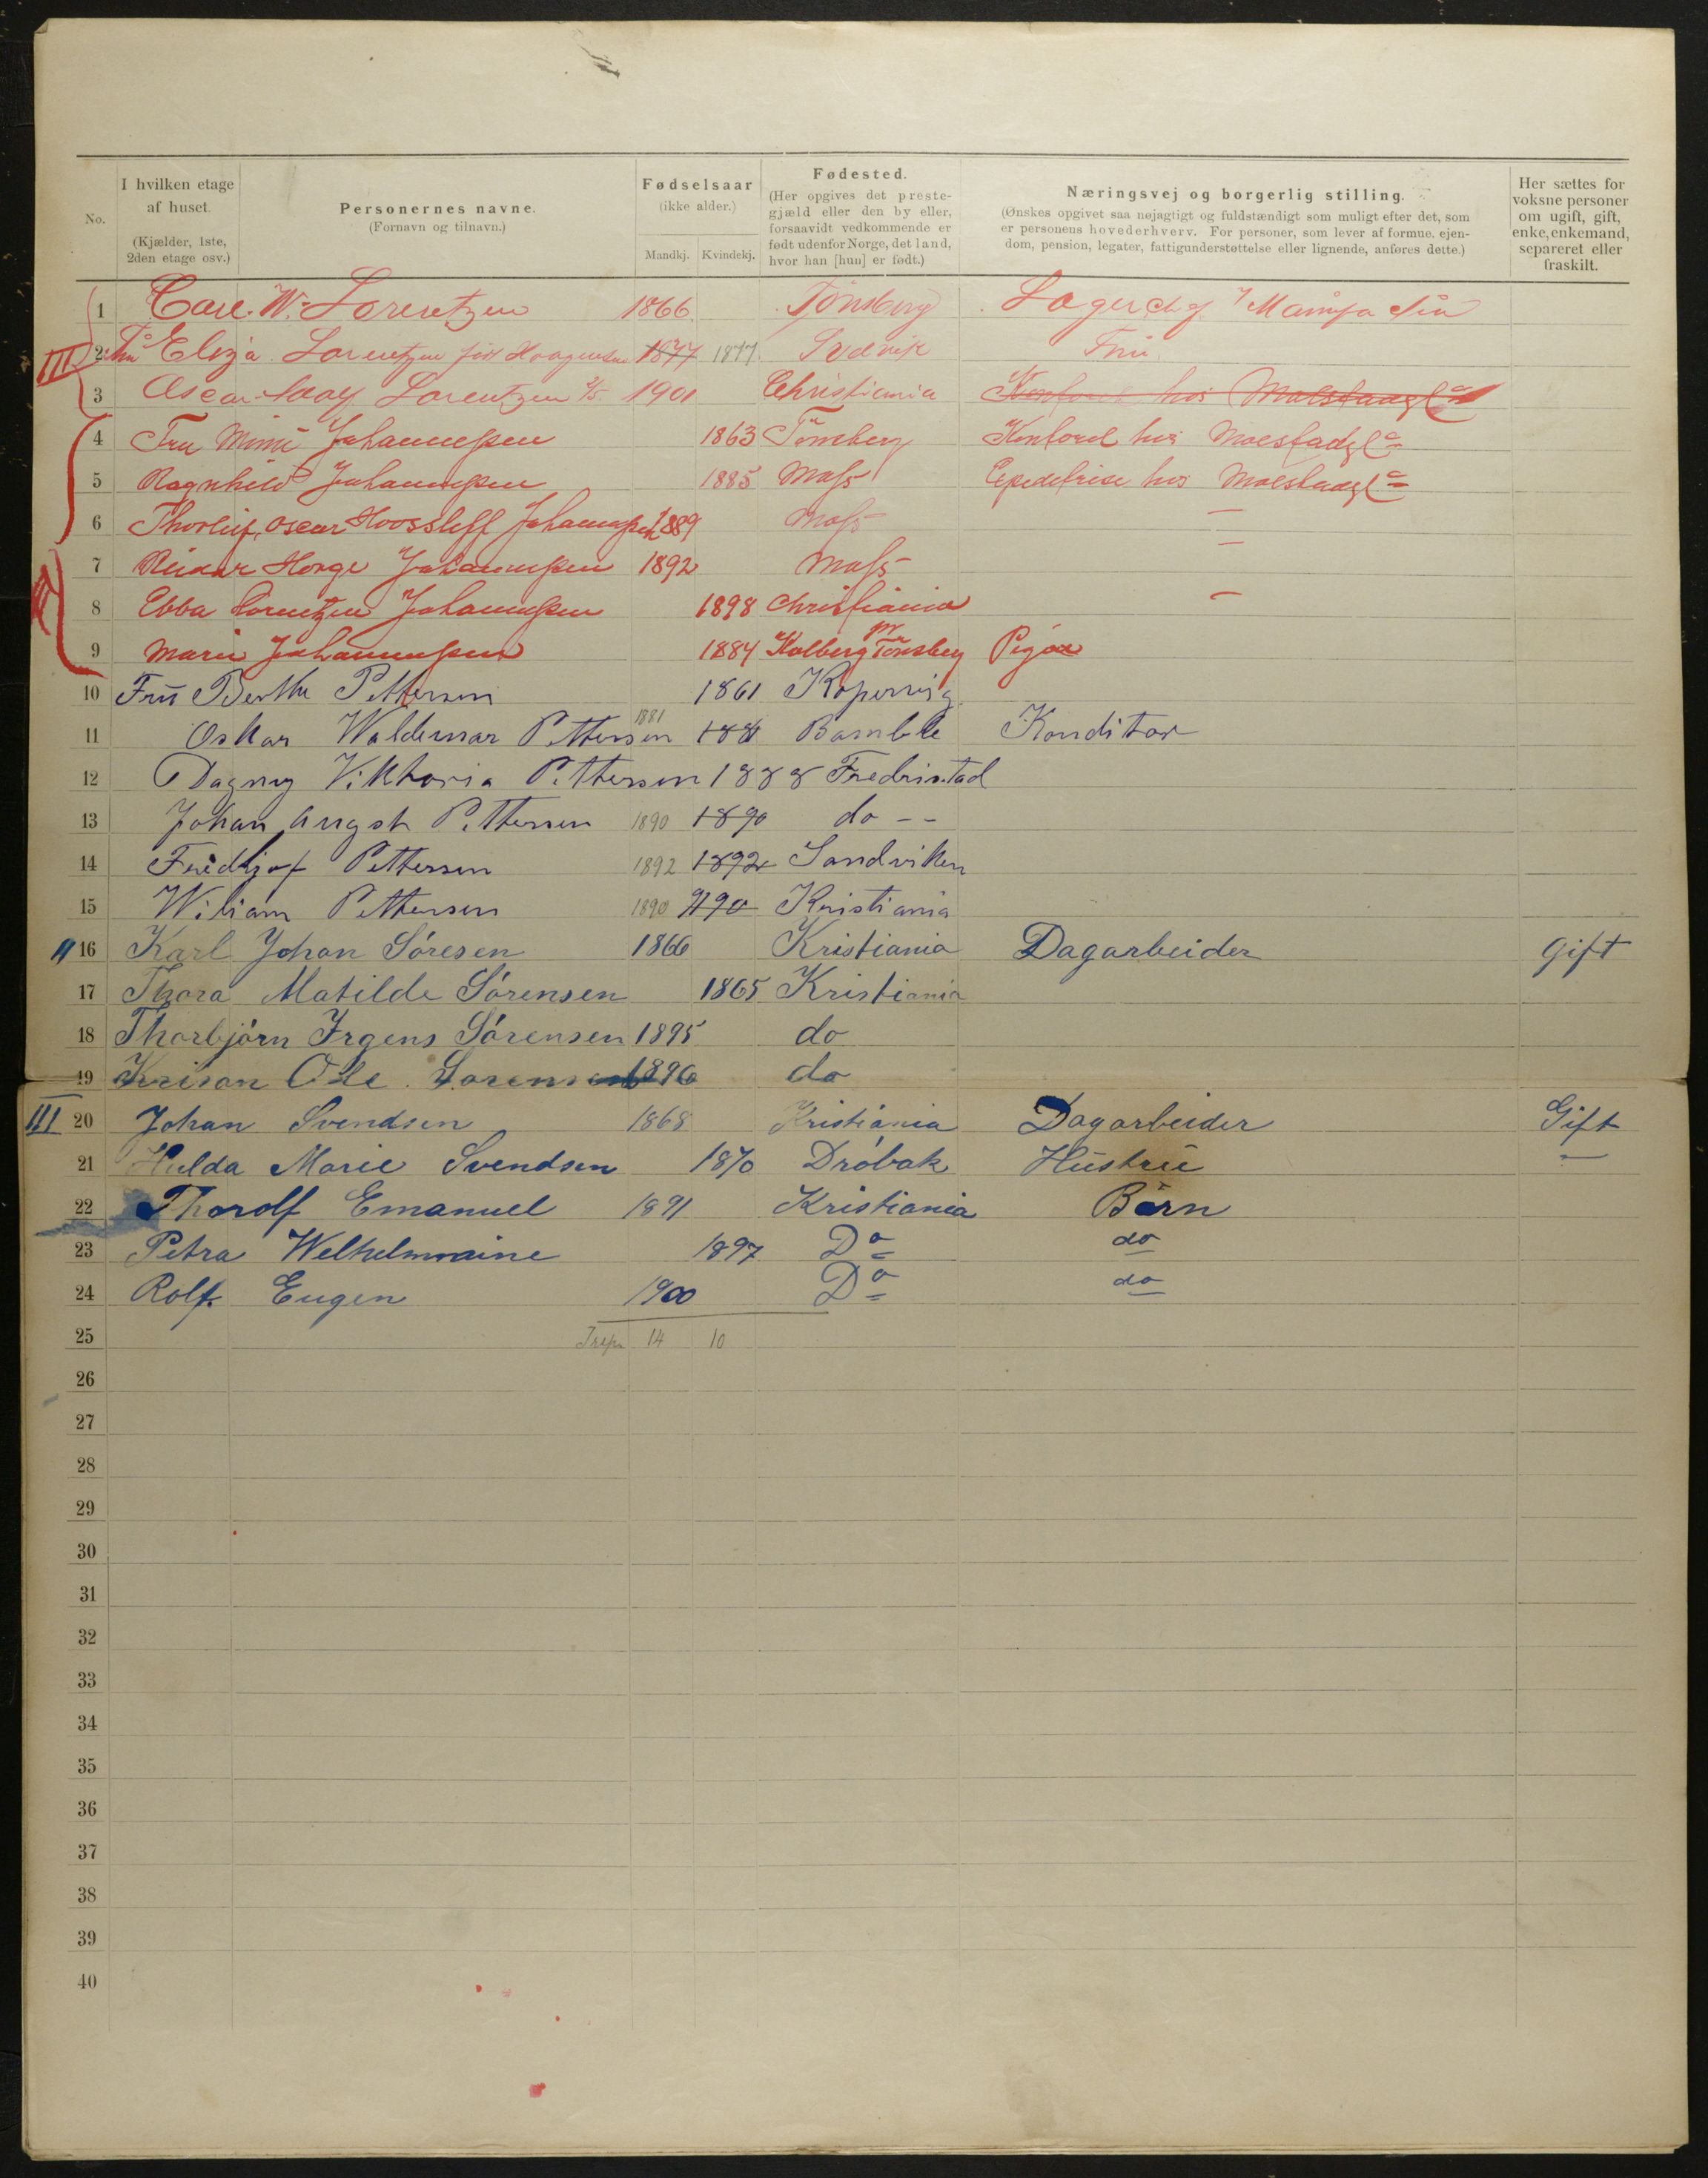 No.
I hvilken etage af huset. (Kjælder, 1ste, 2den etage osv.)
Personernes navne. (Fornavn og tilnavn.)
Fødselsaar (ikke alder.)
Mandkj. Kvindekj.
Fødested. (Her opgives det prestegjæld eller den by eller, forsaavidt vedkommende er født udenfor Norge, det land, hvor han [hun] er født.)
Næringsvej og borgerlig stilling. (Ønskes opgivet saa nøjagtigt og fuldstændigt som muligt efter det, som er personens hovederhverv. For personer, som lever af formue. ejendom, pension, legater, fattigunderstøttelse eller lignende, anføres dette.)
Her sættes for voksne personer om ugift, gift, enke, enkemand, separeret eller fraskilt.
1 W. Lorentzen 1866 Tönsberg
III 2 Lorentzen 1877 1877 Fru
3 Oscar Lorentzen 1901 Christiania
4 Fru Mimi Johannessen 1863 Tönsberg
5 Ragnhild Johannessen 1885 Moss
6 Oscar Johannessen 1889 Moss —
7 Johannessen 1892 Moss —
8 Ebba Lorentzen Johannessen 1898 Christiania —
9 Marie Johannessen 1884 pr Tönsberg Pige
10 Fru Berthe Pettersen 1861 Kopervig
11 Oskar Waldemar Pettersen 1881 1881 Bamble Konditor
12 Dagny Viktoria Pettersen 1888 Fredristad
13 Johan Pettersen 1890 1890 do --
14 Fridtjof Pettersen 1892 1892 Sandviken
15 Wiliam Pettersen 1890 Kristiania
II 16 Karl Johan Sóresen 1866 Kristiania Dagarbeider gift
17 Thora Matilde Sórensen 1865 Kristiania
18 Thorbjórn Irgens Sórensen 1895 do
19 Ole Sorensen 1896 do
III 20 Johan Svendsen 1868 Kristiania Dagarbeider Gift
21 Hulda Marie Svendsen 1870 Dróbak Hustru —
22 Thorolf Emanuel 1891 Kristiania Börn
23 Petra Welhelmmine 1897 Do do
24 Rolf Eugen 1900 Do do
25 14 10
26
27
28
29
30
31
32
33
34
35
36
37
38
39
40